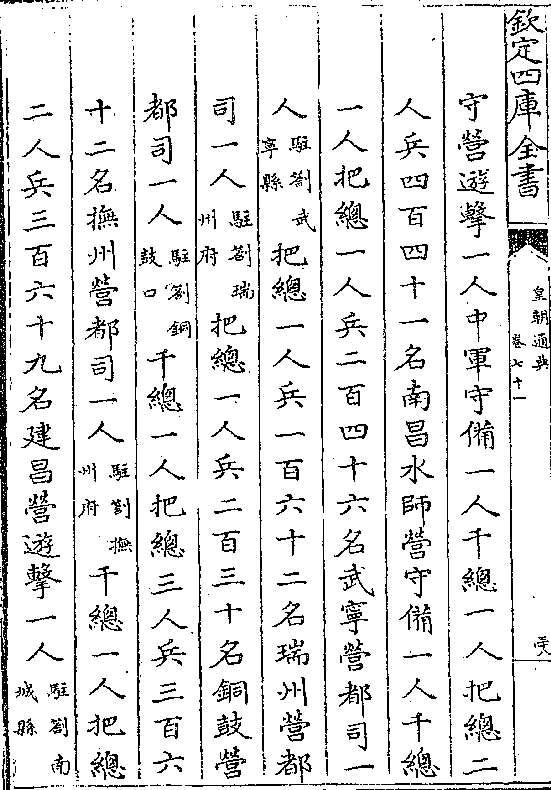 欽定四庫全書
皇朝通典
卷七十一
守營遊擊一人中軍守備一人千總一人把總二
人兵四百四十一名南昌水師營守備一人千總
一人把總一人兵二百四十六名武寧營都司一
人駐劄武寧縣把總一人兵一百六十二名瑞州營都
司一人駐劄瑞州府把總一人兵二百三十名銅鼓營
都司一人駐劄銅鼓口千總一人把總三人兵三百六
十二名撫州營都司一人駐劄撫州府千總一人把總
二人兵三百六十九名建昌營遊擊一人駐劄南城縣